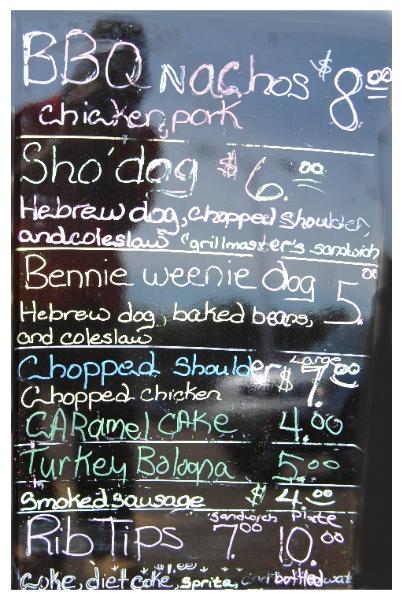 BBQ Nachos $8.00
chicken, pork
Sho'dog $6.00
Hebrew dog, chopped shoulder,
and coleslaw "grillmaster's sandwich
Bennie weenie dog 5.00
Hebrew dog, baked beans,
and coleslaw
Chopped Shoulder Large $7.00
Chopped chicken
CARamel CAKe 4.00
Turkey Baloona 5.00
Smoked Sausage $4.00
Sandwich Plate
Rib Tips 7.00 10.00
$1.00
Coke, diet cake, sprite, and bottled wat